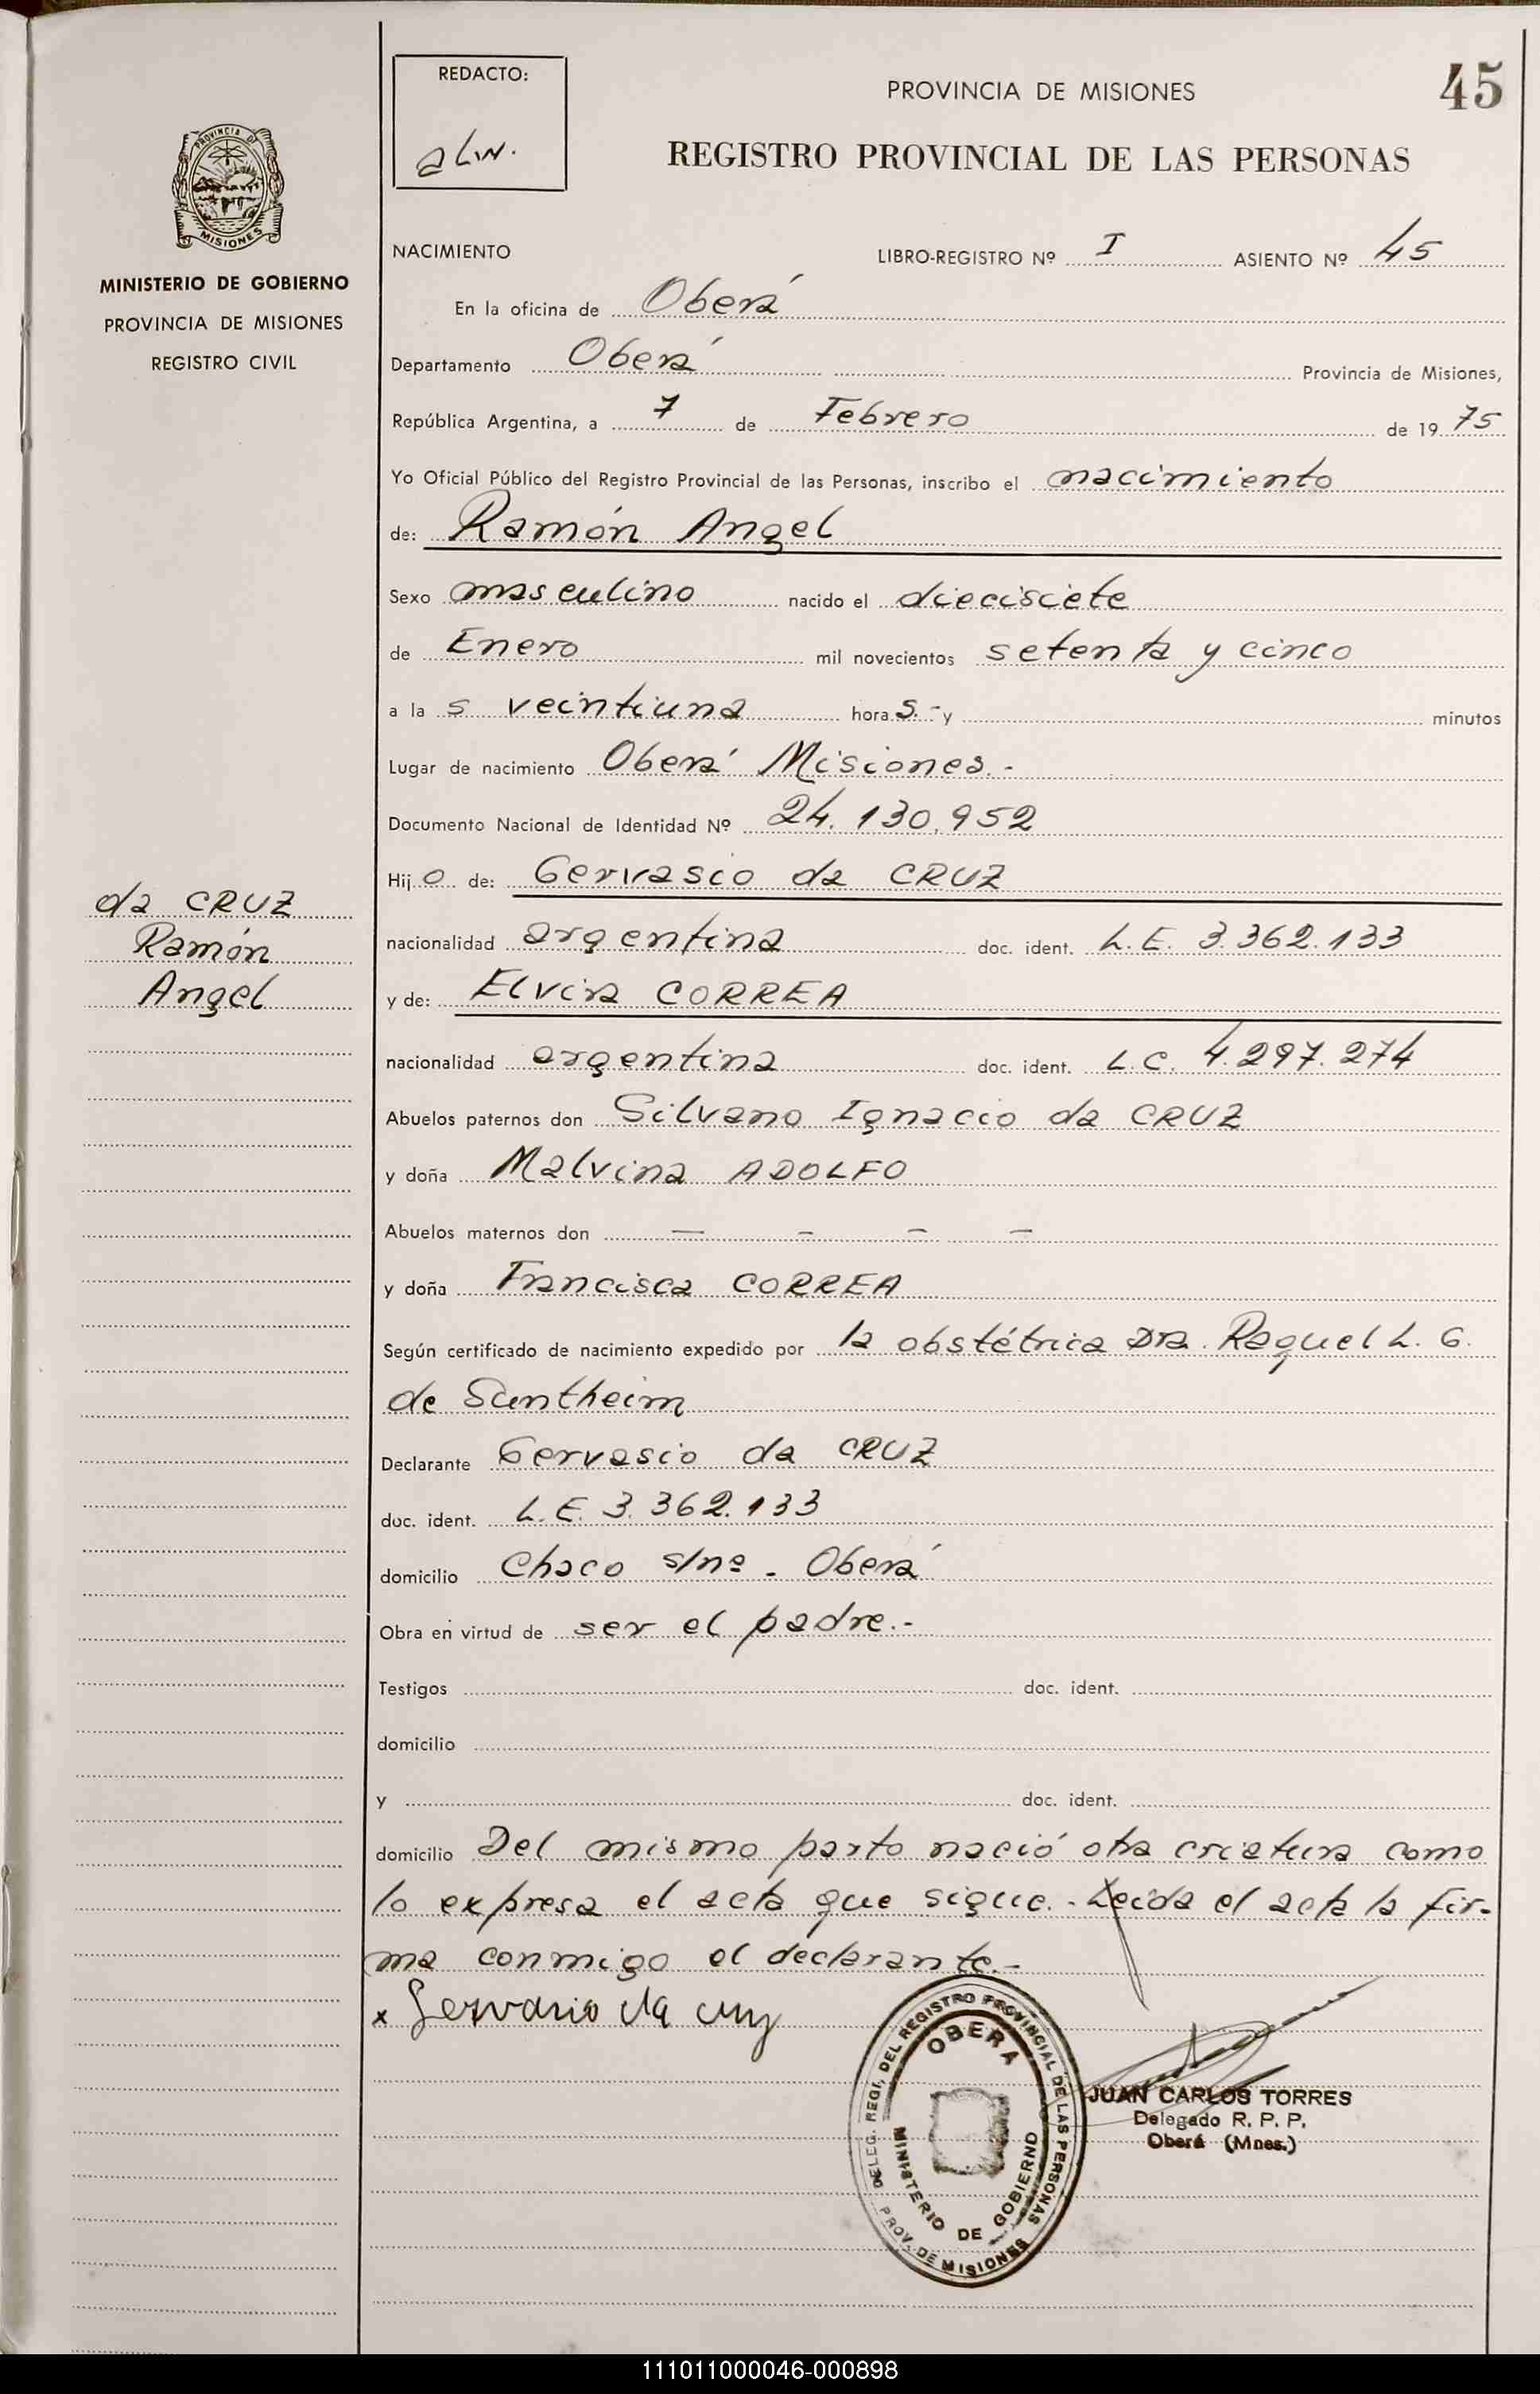 REDACTO:
aLW.
PROVINCIA DE MISIONES
45
REGISTRO PROVINCIAL DE LAS PERSONAS
PROVINCIA DE
MISIONES
MINISTERIO DE GOBIERNO
PROVINCIA DE MISIONES
REGISTRO CIVIL
NACIMIENTO LIBRO-REGISTRO Nº I ASIENTO Nº 45
En la oficina de Oberá
Departamento Oberá Provincia de Misiones,
República Argentina, a 7 de Febrero de 1975
Yo Oficial Público del Registro Provincial de las Personas, inscribo el nacimiento
de: Ramón Angel
Sexo masculino nacido el diecisiete
de Enero mil novecientos setenta y cinco
a la s veintiuna hora s.- y minutos
Lugar de nacimiento Oberá Misiones.-
Documento Nacional de Identidad Nº 24.130.952
Hij o de: Gervasio da CRUZ
nacionalidad argentina doc. ident. L.E. 3.362.133
y de: Elvira CORREA
nacionalidad argentina doc. ident. L.C. 4.297.274
Abuelos paternos don Silvano Ignacio da CRUZ
y doña Malvina ADOLFO
Abuelos maternos don — - - -
y doña Francisca CORREA
Según certificado de nacimiento expedido por la obstétrica Dra. Raquel L. G.
de Suntheim
Declarante Gervasio da CRUZ
doc. ident. L.E. 3.362.133
domicilio Chaco s/nº - Oberá
Obra en virtud de ser el padre.-
Testigos doc. ident.
domicilio
y doc. ident.
domicilio Del mismo parto nació otra criatura como
lo expresa el acta que sigue.- Leida el acta la fir-
ma conmigo el declarante.-
x Gervasio da cruz
da CRUZ
Ramón
Angel
DELEG. REGI. DEL REGISTRO PROVINCIAL DE LAS PERSONAS
OBERA
MINISTERIO DE GOBIERNO
PROV. DE MISIONES
JUAN CARLOS TORRES
Delegado R. P. P.
Oberá (Mnes.)
111011000046-000898